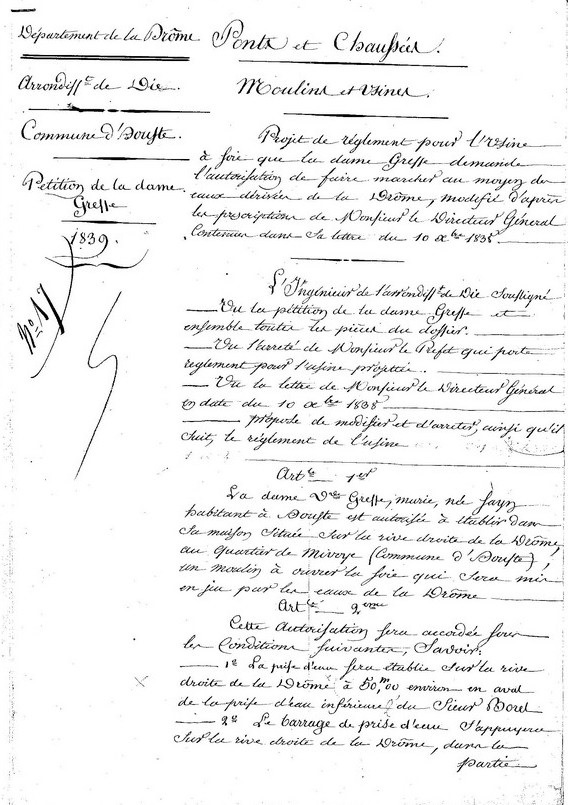 Département de la Drôme
Arrondiss.t de Die.
Commune d'Aouste.
Petition de la dame
Gresse
1839.
N° 17
Ponts et Chaussées.
Moulins et Usines.
Projet de règlement pour l'Usine
à soie que la dame Gresse demande
l'autorisation de faire marcher au moyen des
eaux dérivées de la Drôme, modifié d'après
les prescriptions de Monsieur le Directeur Général
Contenues dans sa lettre du 10 Xbre 1838
L'Ingénieur de l'arrondiss.t de Die Soussigné
Vu la pétition de la dame Gresse et
ensemble toutes les pièces du dossier.
Vu l'arreté de Monsieur le Préfet qui porte
reglement pour l'usine projettée.
Vu la lettre de Monsieur le Directeur Général
en date du 10 Xbre 1838
propose de modifier et d'arreter, ainsi qu'il
suit, le réglement de l'usine
Art.le 1er
La dame Vve Gresse, née
habitant à Aouste est autorisée à établir dans
sa maison située sur la rive droite de la Drôme,
au quartier de Mivoye (Commune d'Aouste),
un moulin à ouvrer la soie qui sera mis
en jeu par les eaux de la Drôme
Art.le 2eme
Cette Autorisation sera accordée sous
les Conditions suivantes, Savoir:
1° La prise d'eau sera établie sur la rive
droite de la Drôme à 50,m00 environ en aval
de la prise d'eau inférieure du Sieur Borel
2° Le barrage de prise d'eau s'appuyera
sur la rive droite de la Drôme, dans la
partie